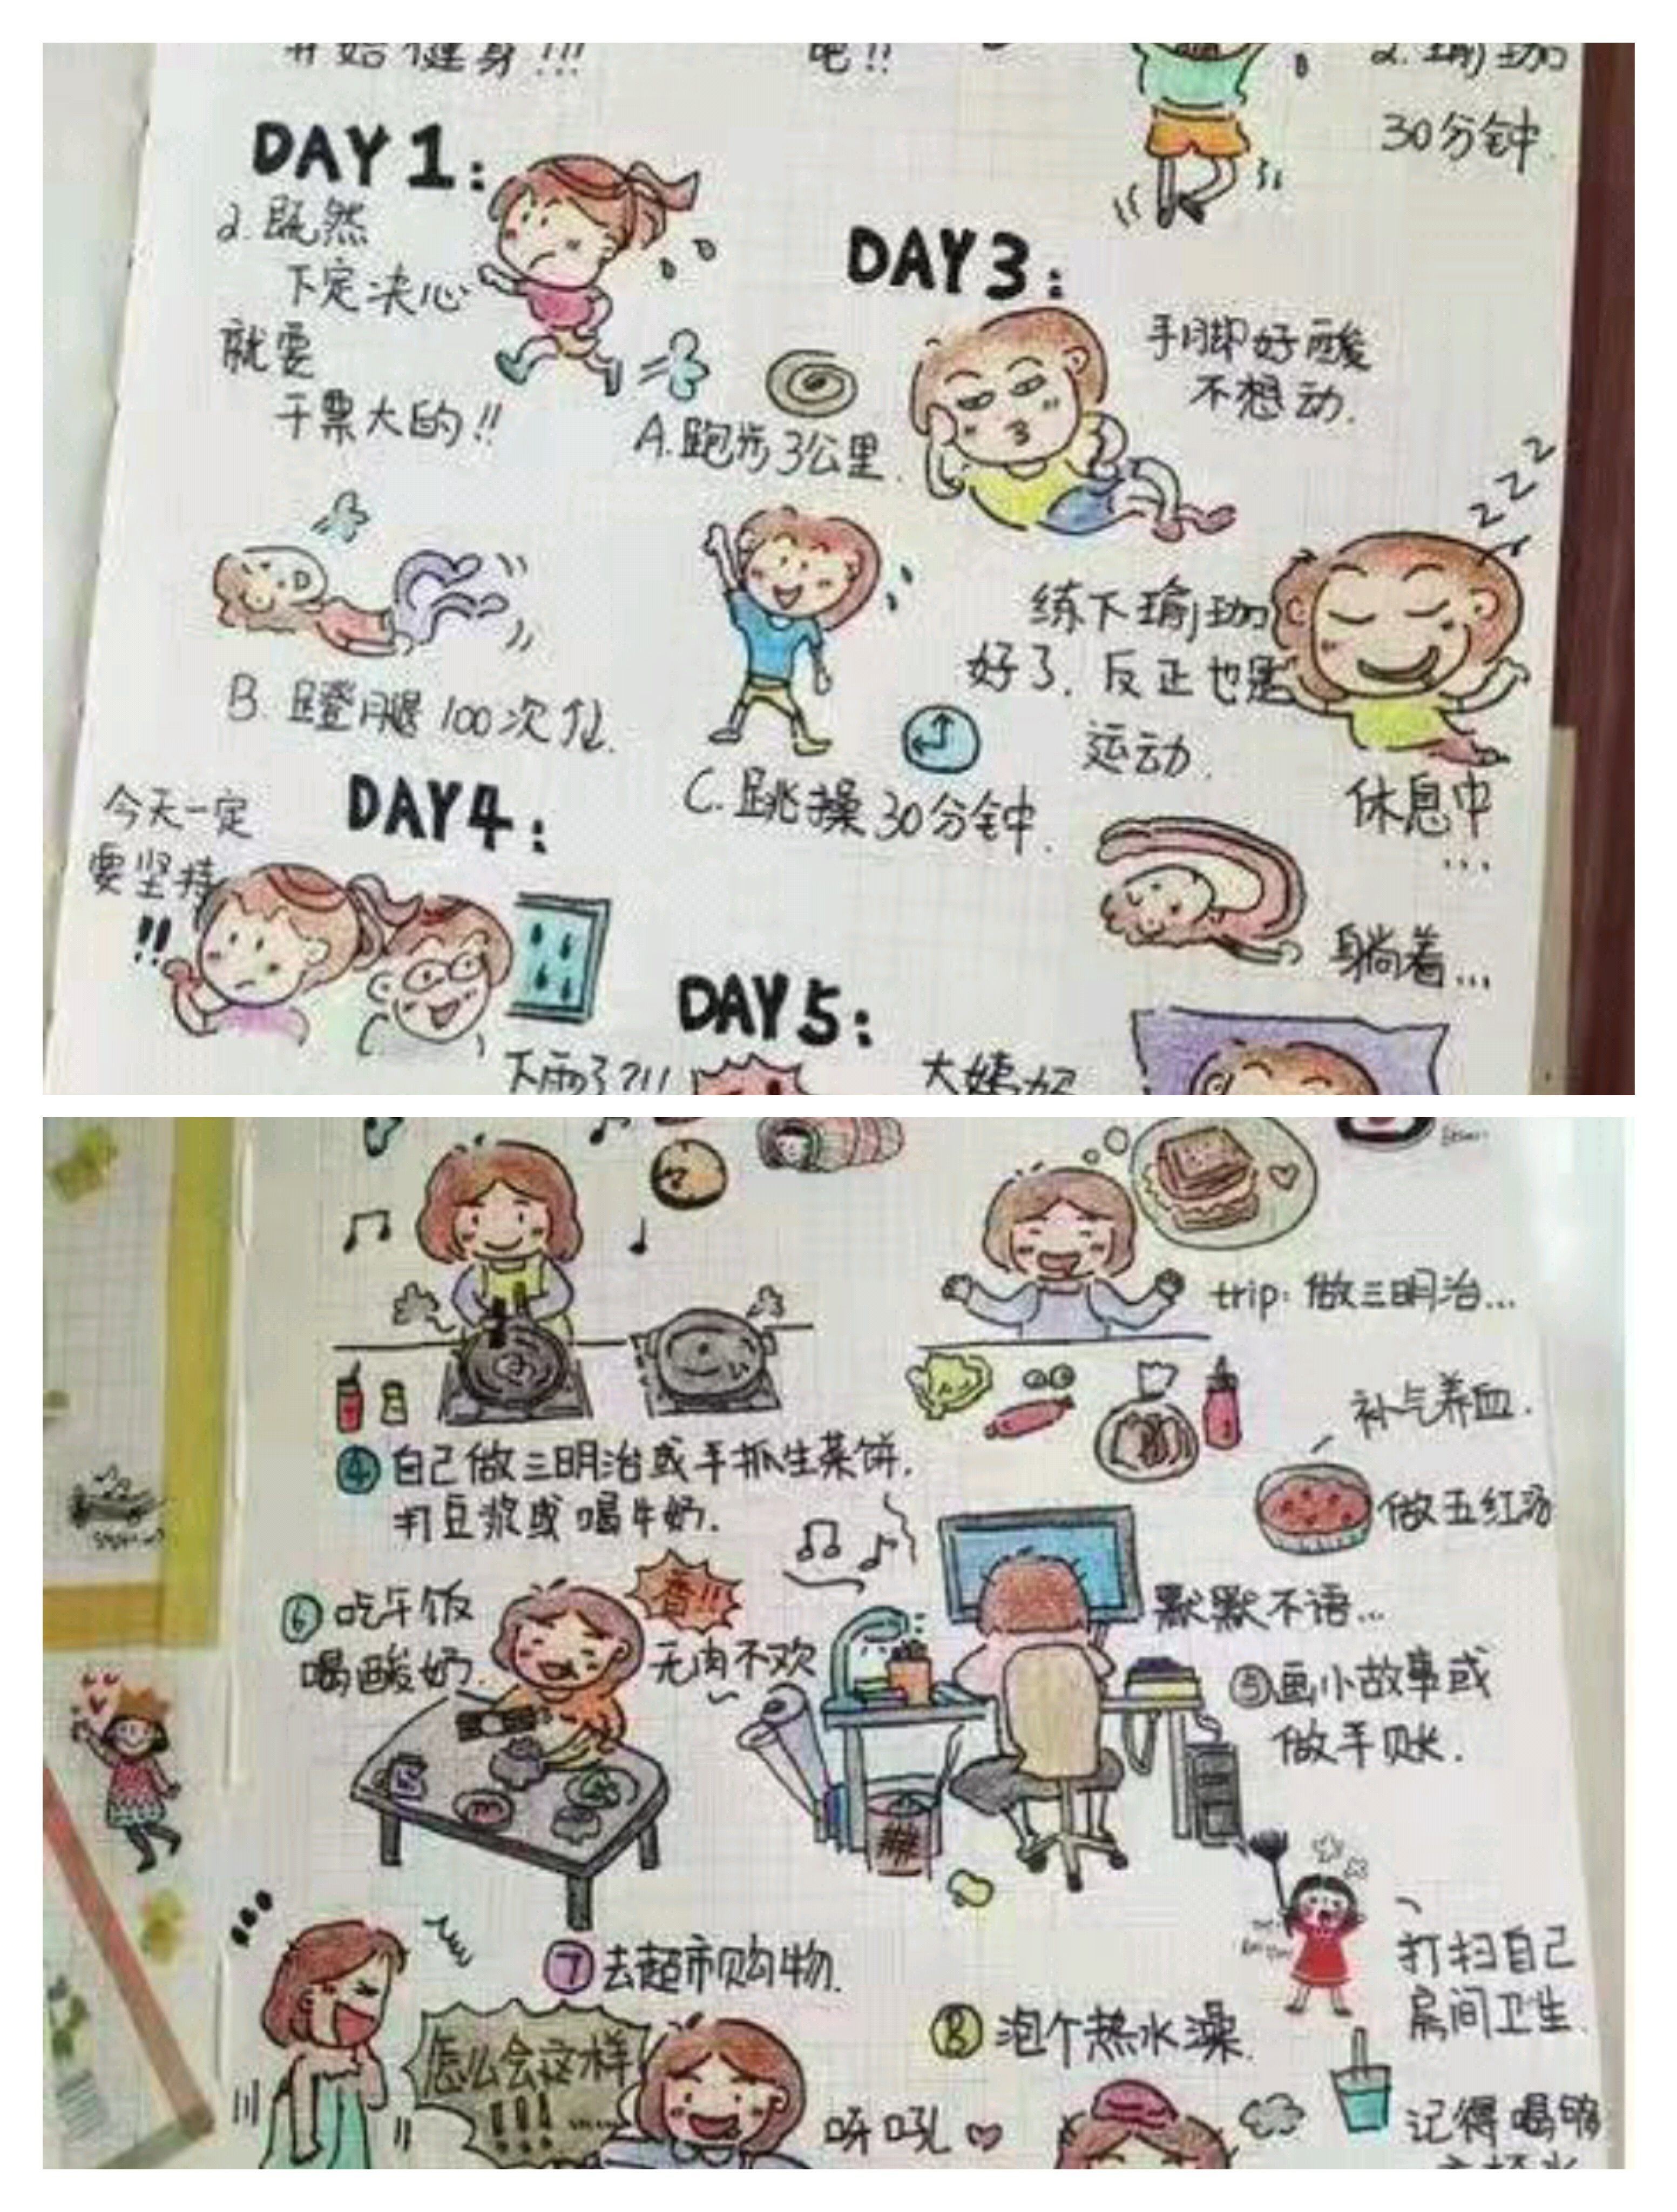 开始健身!!!
吧!!
2.瑜珈
30分钟.
DAY 1:
2.既然
下定决心
就要
干票大的!!
A.跑步3公里.
B.蹬腿100次/
C.跳操30分钟.
DAY3:
手脚好酸
不想动.
zzz
练下瑜珈
好了.反正也是
运动.
休息中
...
身躺着...
DAY4:
今天一定
要坚持
!!
下雨了?!!
DAY5:
大姨妈
trip:做三明治...
补气养血.
做五红汤
④自己做三明治或手抓生菜饼.
打豆浆或喝牛奶.
⑥吃午饭
喝酸奶.
香!!
无肉不欢
默默不语...
⑤画小故事或
做手账.
⑦去超市购物.
怎么会这样
!!!......
⑧泡个热水澡.
打扫自己
房间卫生.
呀吼
记得喝够